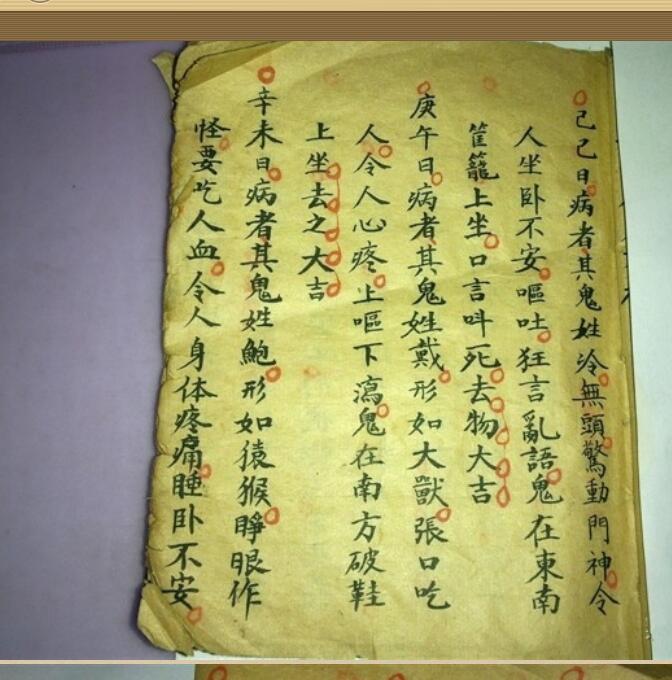 己巳日病者其鬼姓冷無頭驚動門神令
人坐卧不安嘔吐狂言亂語鬼在東南
筐籠上坐口言叫死去物大吉
庚午日病者其鬼姓戴形如大獸張口吃
人令人心疼上嘔下瀉鬼在南方破鞋
上坐去之大吉
辛未日病者其鬼姓鮑形如猿猴睜眼作
怪要吃人血令人身体疼痛睡卧不安